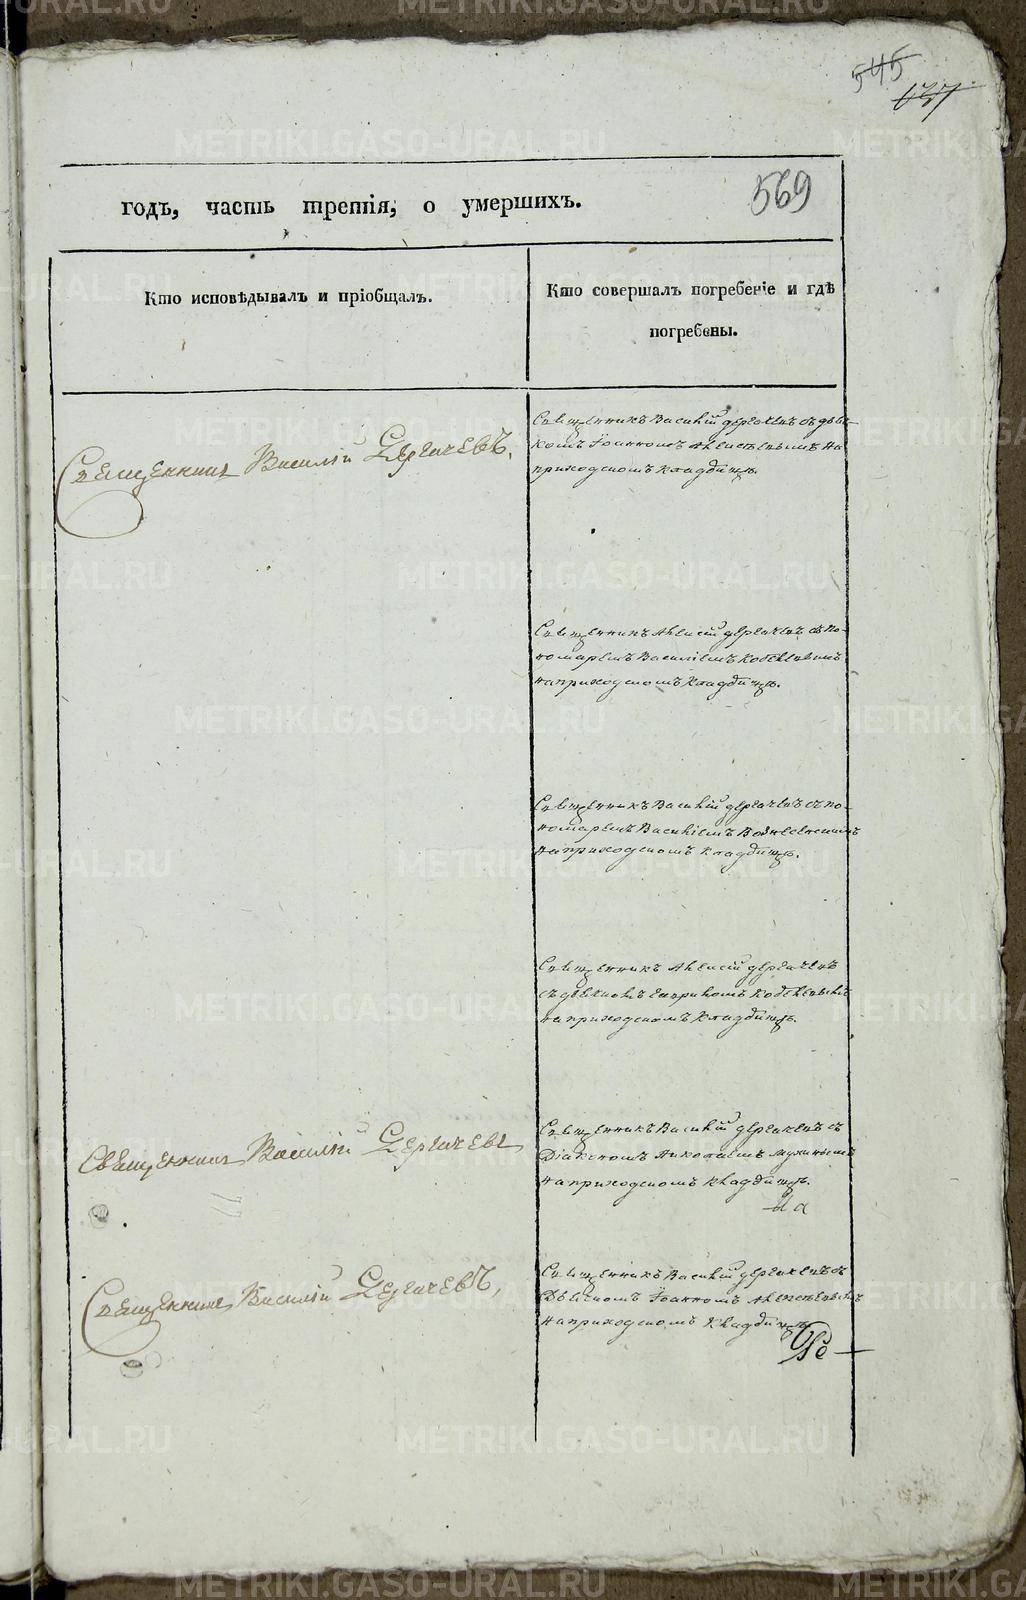 545
637
569
годъ, часть третія, о умершихъ.
Кто исповѣдывалъ и пріобщалъ.
Кто совершалъ погребеніе и гдѣ
погребены.
Священникъ Василій Сергачевъ,
Священникъ Василій Дергачевъ съ дьяч-
комъ Іоанномъ Алексѣевымъ на
приходскомъ кладбищѣ.
Священникъ Алексій Дергачевъ съ по-
номаремъ Василіемъ
на приходскомъ кладбищѣ.
Священникъ Василій Дергачевъ съ по-
номаремъ Василіемъ Вознесенскимъ
на приходскомъ кладбищѣ.
Священникъ Алексій Дергачевъ
съ дьячкомъ
на приходскомъ кладбищѣ.
Священникъ Василій Сергачевъ
Священникъ Василій Дергачевъ съ
Діакономъ Николаемъ
на приходскомъ кладбищѣ.
Священникъ Василій Сергачевъ,
Священникъ Василій Дергачевъ съ
Дьячкомъ Іоанномъ Алексѣевымъ
на приходскомъ кладбищѣ.
METRIKI.GASO-URAL.RU